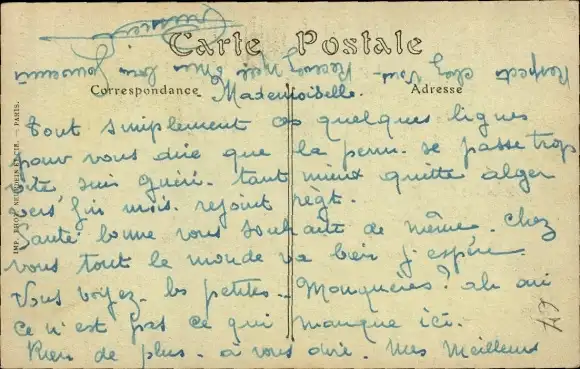 Carte Postale
Correspondance
Adresse
Mademoiselle.
Tout simplement ces quelques lignes
pour vous dire que la perm. se passe trop
vite suis guéri. tant mieux quitte alger
vers fin mois. rejoint régt.
Santé bonne vous souhaite de même. Chez
vous tout le monde va bien j'espère.
Vous voyez. les petites.. Mouquères? ah oui
ce n'est pas ce qui manque ici.
Rien de plus. à vous dire. Mes Meilleurs
Respects chez vous. Recevez Melle mon bon Souvenir
IMP. PHOT. NEURDEIN ET CIE. — PARIS.